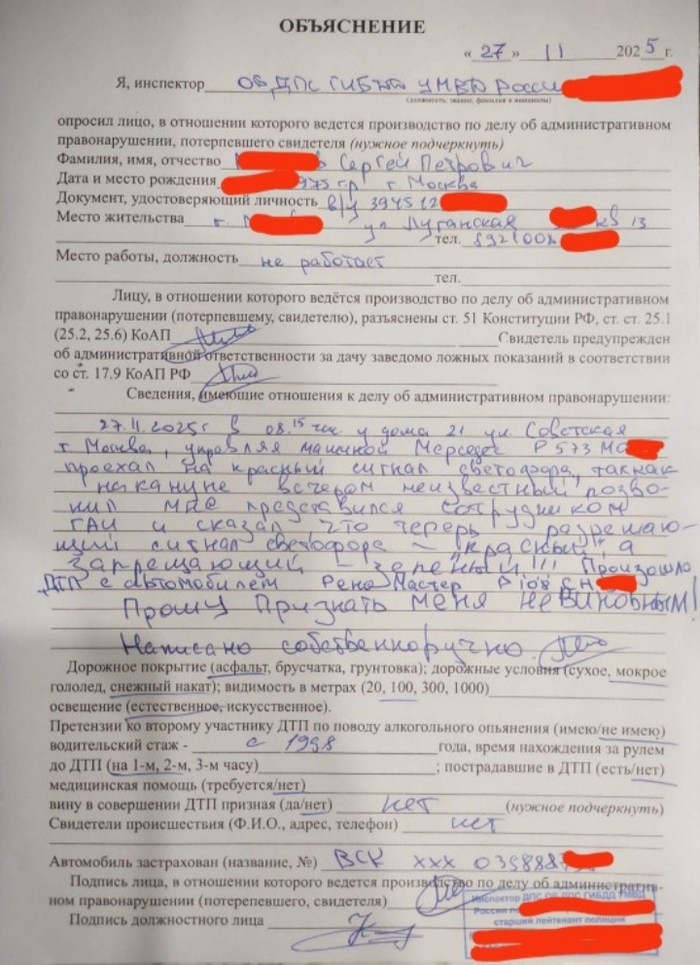 ОБЪЯСНЕНИЕ
« 27 » 11 2025 г.
Я, инспектор ОВ ДПС ГИБДД УМВД России
(должность, звание, фамилия и инициалы)
опросил лицо, в отношении которого ведется производство по делу об административном
правонарушении, потерпевшего свидетеля (нужное подчеркнуть)
Фамилия, имя, отчество в Сергей Петрович
Дата и место рождения 975 г.р г. Москва
Документ, удостоверяющий личность в/у 394512
Место жительства г. ул. Луганская кв 13
тел.
Место работы, должность не работает
тел.
Лицу, в отношении которого ведётся производство по делу об административном
правонарушении (потерпевшему, свидетелю), разъяснены ст. 51 Конституции РФ, ст. ст. 25.1
(25.2, 25.6) КоАП Свидетель предупрежден
об административной ответственности за дачу заведомо ложных показаний в соответствии
со ст. 17.9 КоАП РФ
Сведения, имеющие отношения к делу об административном правонарушении:
27.11.2025г в 08.15 час у дома 21 ул. Советская
г Москва, управляя машиной Мерседес Р 573 М
проехал на красный сигнал светофора, так как
накануне вечером неизвестный позво-
нил мне представился сотрудником
ГАИ и сказал что теперь разрешаю-
щий сигнал светофора - "красный", а
запрещающий - зеленый!!! Произошло
ДТП с автомобилем Рено Мастер Р 108 СН
Прошу признать меня невиновным!
Написано собственноручно.
Дорожное покрытие (асфальт, брусчатка, грунтовка); дорожные условия (сухое, мокрое
гололед, снежный накат); видимость в метрах (20, 100, 300, 1000)
освещение (естественное, искусственное).
Претензии ко второму участнику ДТП по поводу алкогольного опьянения (имею/не имею)
водительский стаж - с 1998 года, время нахождения за рулем
до ДТП (на 1-м, 2-м, 3-м часу) ; пострадавшие в ДТП (есть/нет)
медицинская помощь (требуется/нет)
вину в совершении ДТП призная (да/нет) нет (нужное подчеркнуть)
Свидетели происшествия (Ф.И.О., адрес, телефон) нет
Автомобиль застрахован (название, №) ВСК ХХХ 0398887
Подпись лица, в отношении которого ведется производство по делу об административ-
ном правонарушении (потерепевшего, свидетеля)
Подпись должностного лица
Инспектор ДПС ОВ ДПС ГИБДД УМВД
России по
старший лейтенант полиции